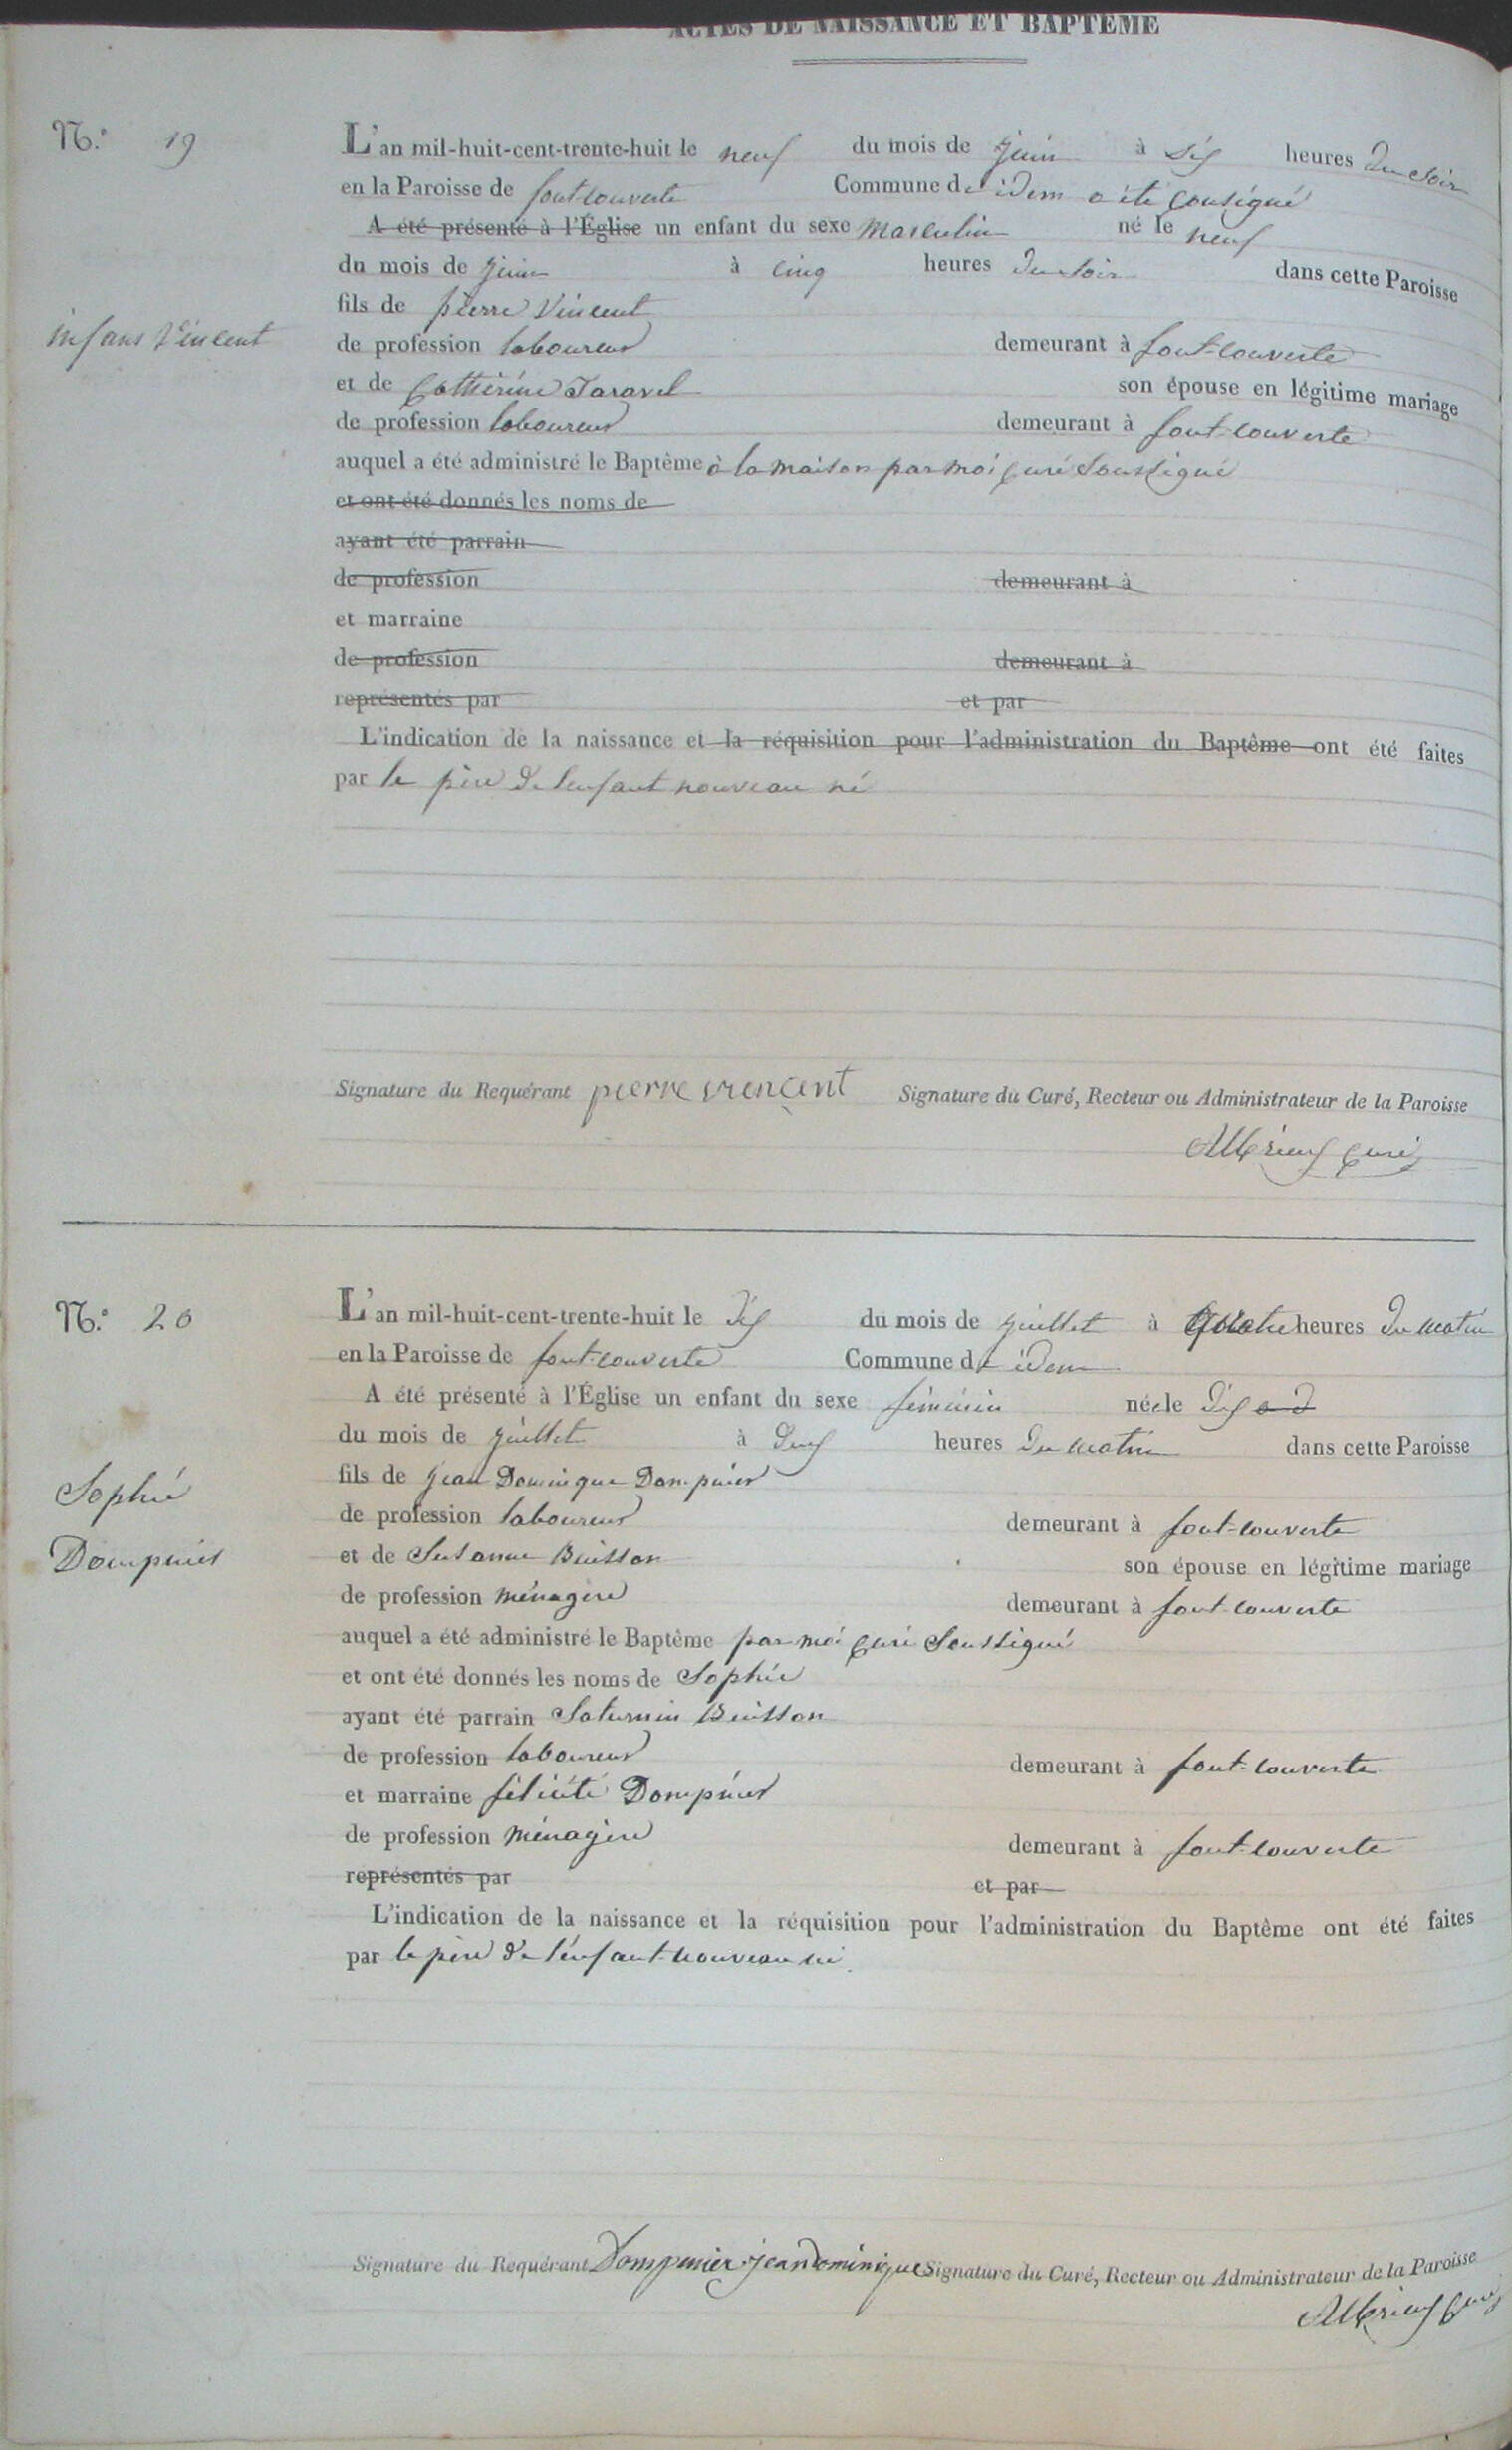 ACTES DE NAISSANCE ET BAPTÊME
N.º 19
L'an mil-huit-cent-trente-huit le neuf du mois de juin à six heures du soir
en la Paroisse de font-couverte Commune de idem a été consigné
A été présenté à l'Église un enfant du sexe masculin né le neuf
du mois de juin à cinq heures du soir dans cette Paroisse
fils de pierre Vincent
infans Vincent
de profession laboureur demeurant à font-couverte
et de Catherine Taravel son épouse en légitime mariage
de profession laboureur demeurant à font-couverte
auquel a été administré le Baptême à la maison par moi curé soussigné
et ont été donnés les noms de
ayant été parrain
de profession demeurant à
et marraine
de profession demeurant à
représentés par et par
L'indication de la naissance et la réquisition pour l'administration du Baptême ont été faites
par le père de l'enfant nouveau né
Signature du Requérant pierre vencent Signature du Curé, Recteur ou Administrateur de la Paroisse
curé
N.º 20
L'an mil-huit-cent-trente-huit le dix du mois de juillet à quatre heures du matin
en la Paroisse de font-couverte Commune de idem
A été présenté à l'Église un enfant du sexe féminin née le dix
du mois de juillet à deux heures du matin dans cette Paroisse
fils de jean Dominique Dompnier
Sophie
Dompnier
de profession laboureur demeurant à font-couverte
et de Susanne Buisson son épouse en légitime mariage
de profession ménagère demeurant à font-couverte
auquel a été administré le Baptême par moi curé soussigné
et ont été donnés les noms de Sophie
ayant été parrain Saturnin Buisson
de profession laboureur demeurant à font-couverte
et marraine félicité Dompnier
de profession ménagère demeurant à font-couverte
représentés par et par
L'indication de la naissance et la réquisition pour l'administration du Baptême ont été faites
par le père de l'enfant nouveau né
Signature du Requérant Dompnier jean dominique Signature du Curé, Recteur ou Administrateur de la Paroisse
curé